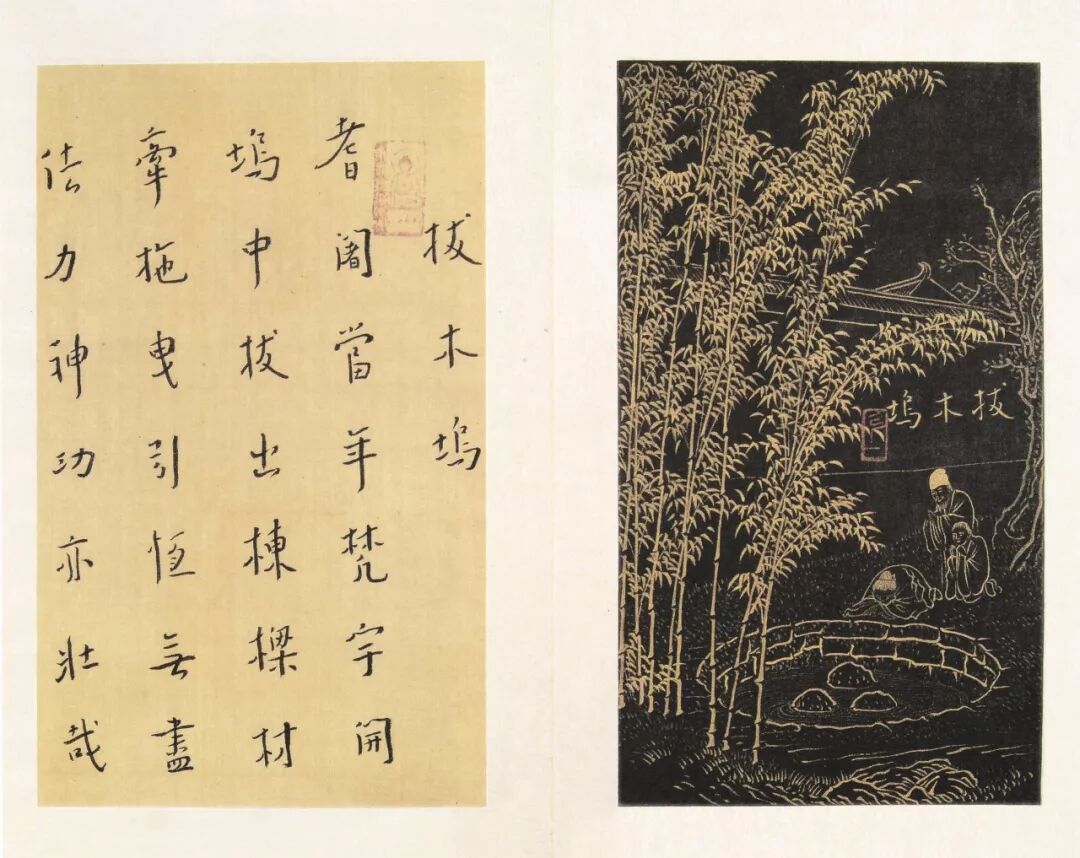 拔木塢
耆闍當年梵宇開
塢中拔出棟樑材
牽拖曳引恆無盡
法力神功亦壯哉
拔木塢